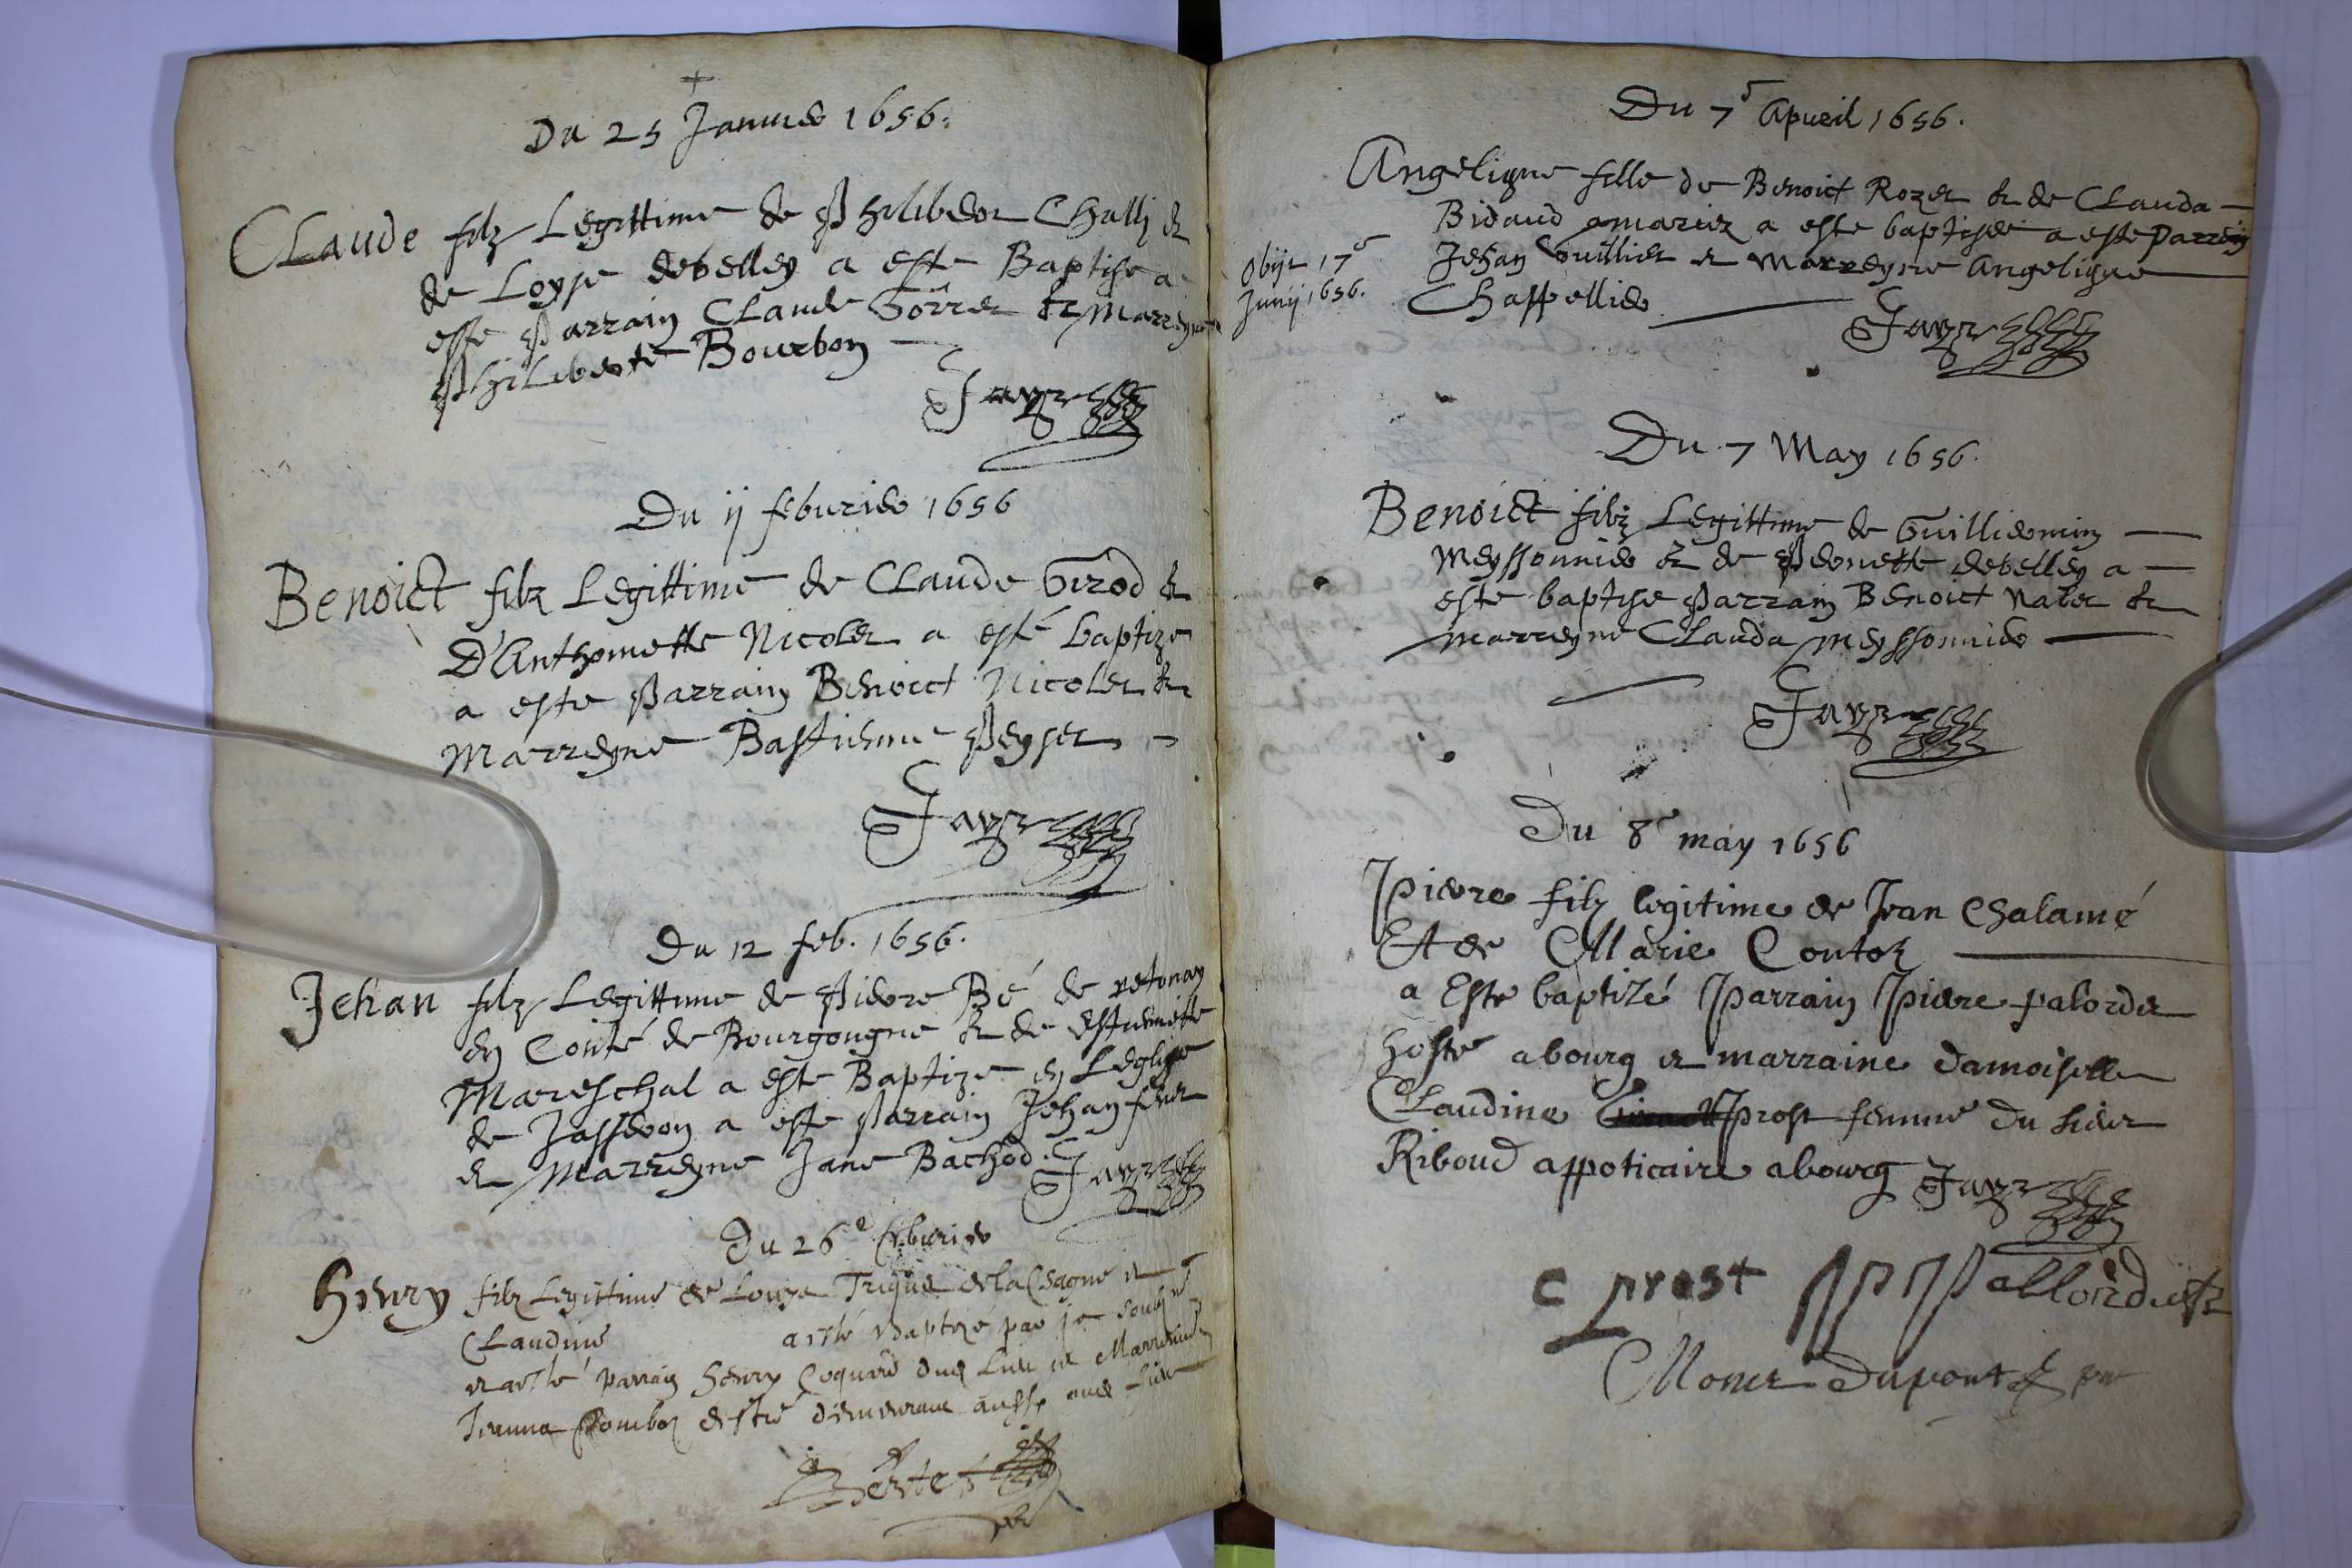 Du 25 Januier 1656.
CLaude filz Legittime de Philiber Challj et
de Loyse debelley a este Baptise a
este Parrain CLaude Gorrer et Marreyne
Philiberte Bourbon
Fayr
Du ij feburier 1656
Benoict filz Legittime de CLaude Girod et
D'Anthoinette Nicoler a esté baptize
a este Parrain Benoict Nicoler et
Marreyne Bastienne
Fayr
Du 12 feb. 1656.
Jehan filz Legittime de Pierre Bé de
en Conté de Bourgougne et de Estiennette
Mareschal a este Baptize en Leglise
de Jasseron a este Parrain Jehan
et Marreyne Jane Bachod.
Fayr
Du 26e feburier
Henry filz Legittime de Louys et
CLaudine a esté Baptizé par je soubzne
et a esté parrain Henry Coquard dud Lieu et Marreine
demeurant aussy aud Lieu
Du 7e Apueil 1656.
Angelique fille de Benoict Rozer et de CLauda
Bidaud a este baptisée a este Parrein
Jehan et Marreyne Angelique
Chappellier
Obijt 17e
Junij 1656.
Fayr
Du 7 May 1656.
Benoict filz Legittime de Guillieumin
Meyssonnier et de Pernette debelley a
este baptise Parrain Benoict et
marreyne CLauda Meyssonnier
Fayr
Du 8e may 1656
Pierre filz legitime de Jean Chalamé
Et de Marie Contoz
a Este baptizé Parrain Pierre palorder
hoste abourg et marraine damoiselle
Claudine Prost femme du sieur
Riboud appoticaire abourg
Fayr
C prost
dupont